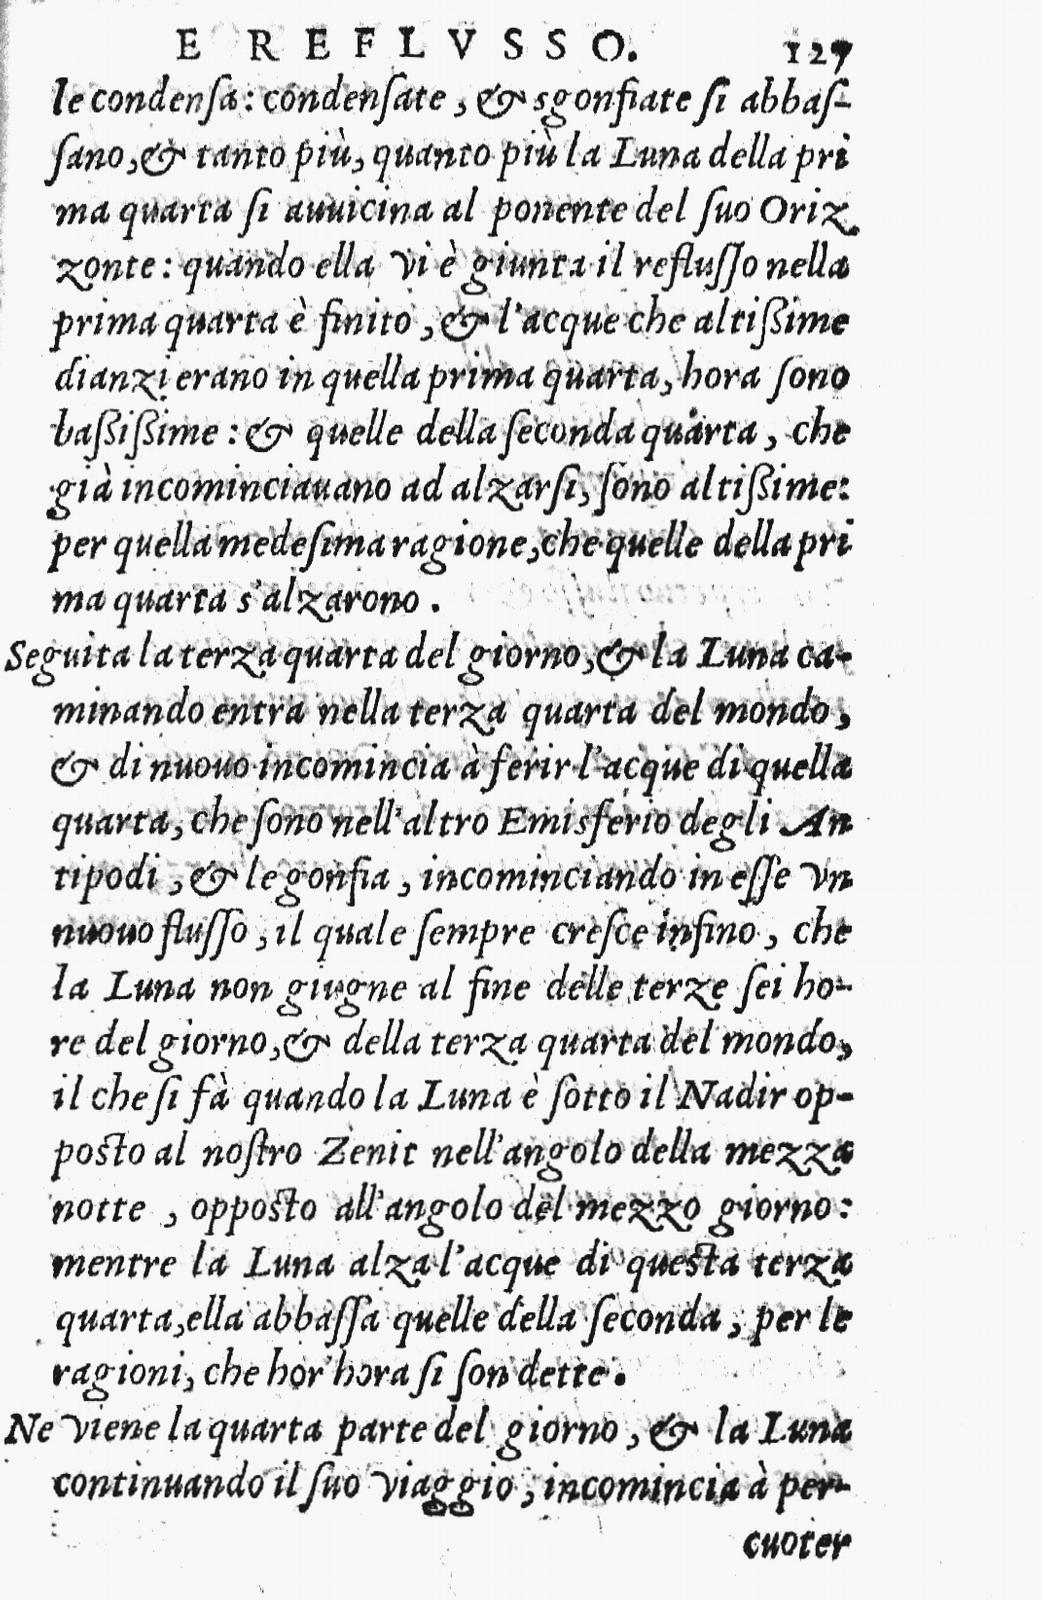 E REFLVSSO. 127
le condenſa: condenſate, & sgonfiate ſi abbaſ-
ſano, & tanto più, quanto più la Luna della pri
ma quarta ſi auuicina al ponente del ſuo Oriz
zonte: quando ella vi è giunta il refluſſo nella
prima quarta è finito, & l'acque che altißime
dianzi erano in quella prima quarta, hora ſono
baßißime: & quelle della ſeconda quarta, che
già incominciauano ad alzarſi, ſono altißime:
per quella medeſima ragione, che quelle della pri
ma quarta s'alzarono.
Seguita la terza quarta del giorno, & la Luna ca-
minando entra nella terza quarta del mondo,
& di nuouo incomincia à ferir l'acque di quella
quarta, che ſono nell'altro Emisferio degli An
tipodi, & le gonfia, incominciando in eſſe vn
nuouo fluſſo, il quale ſempre creſce infino, che
la Luna non giugne al fine delle terze ſei ho-
re del giorno, & della terza quarta del mondo,
il che ſi fà quando la Luna è ſotto il Nadir op-
poſto al noſtro Zenit nell'angolo della mezza
notte, oppoſto all'angolo del mezzo giorno:
mentre la Luna alza l'acque di queſta terza
quarta, ella abbaſſa quelle della ſeconda, per le
ragioni, che hor hora ſi ſon dette.
Ne viene la quarta parte del giorno, & la Luna
continuando il ſuo viaggio, incomincia à per-
cuoter